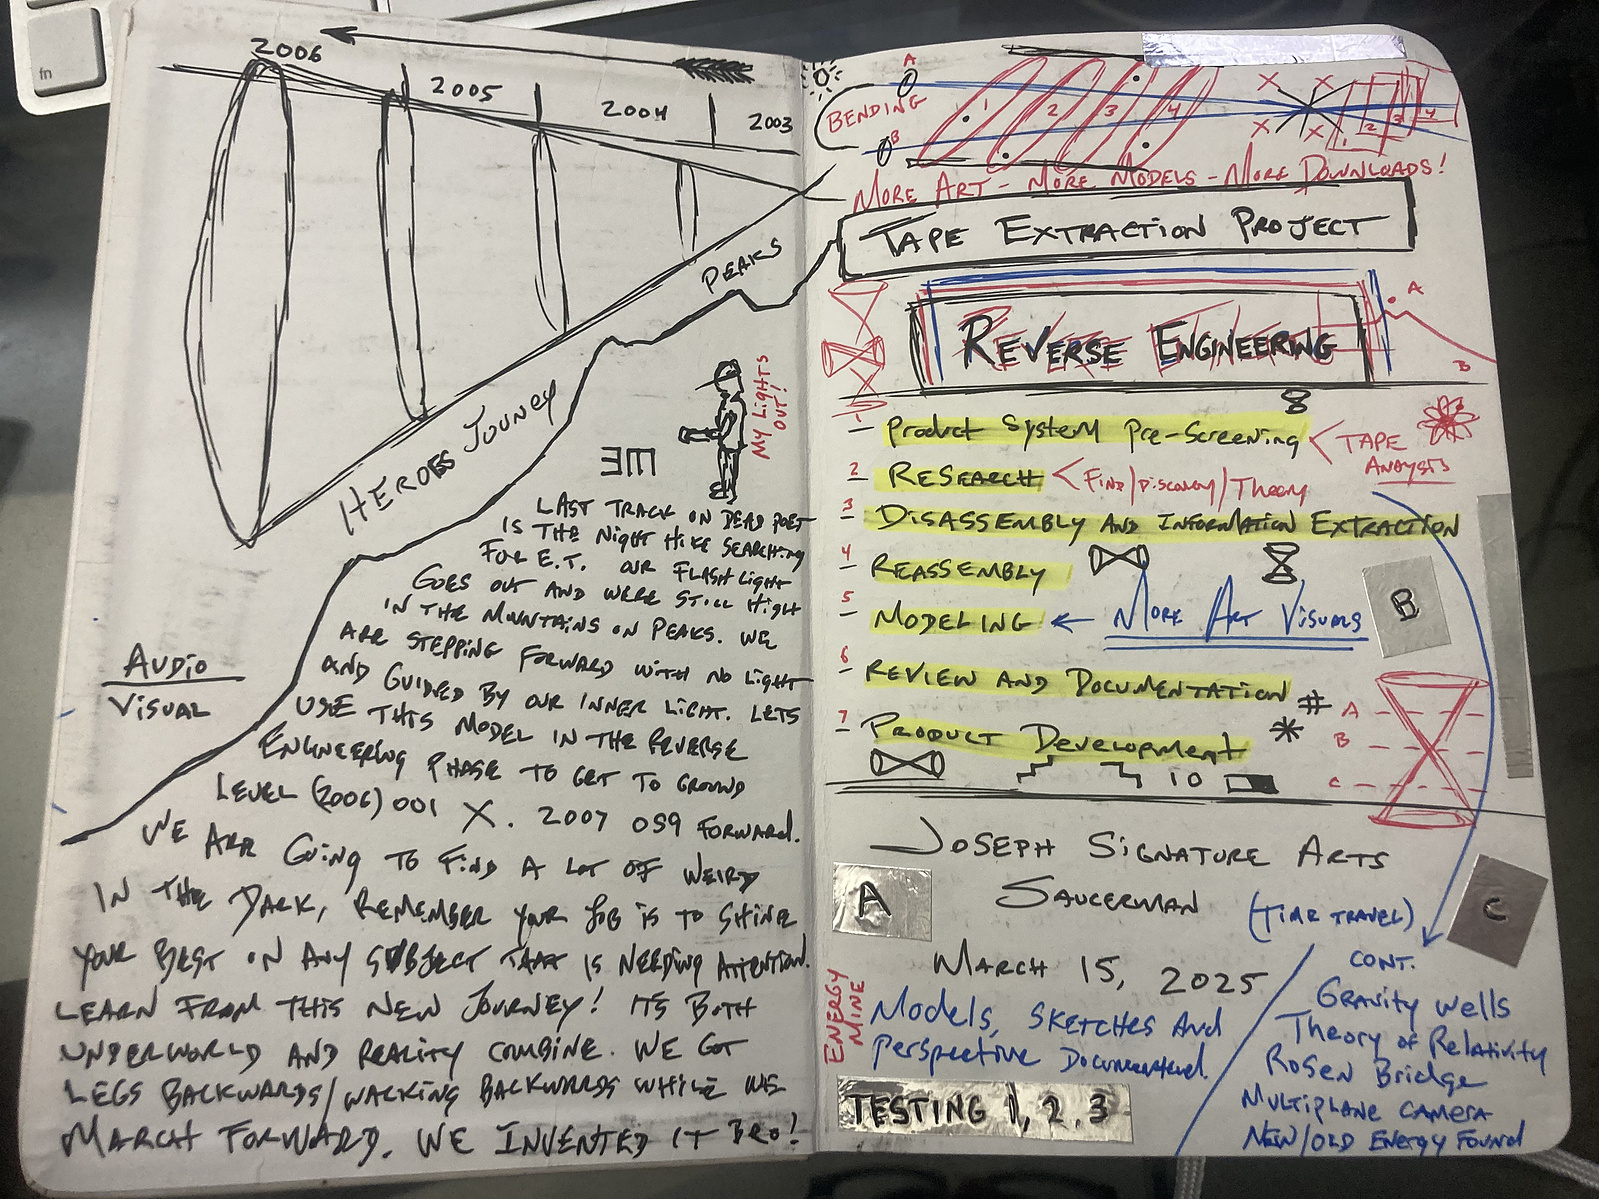 fn
2006
2005
2004
2003
PEAKS
HEROES JOUNEY
MY LIGHTS
OUT!
ME
LAST TRACK ON DEAD POET
IS THE NIGHT HIKE SEARCHING
FOR E.T. OUR FLASHLIGHT
GOES OUT AND WERE STILL HIGH
IN THE MOUNTAINS ON PEAKS. WE
ARE STEPPING FORWARD WITH NO LIGHT
AND GUIDED BY OUR INNER LIGHT. LETS
USE THIS MODEL IN THE REVERSE
ENGINEERING PHASE TO GET TO GROUND
LEVEL (2006) 001 X. 2007 059 FORWARD.
AUDIO
VISUAL
WE ARE GOING TO FIND A LOT OF WEIRD
IN THE DARK, REMEMBER YOUR JOB IS TO SHINE
YOUR BEST ON ANY SUBJECT THAT IS NEEDING ATTENTION.
LEARN FROM THIS NEW JOURNEY! ITS BOTH
UNDERWORLD AND REALITY COMBINE. WE GOT
LEGS BACKWARDS/WALKING BACKWARDS WHILE WE
MARCH FORWARD. WE INVENTED IT BRO!
A
BENDING
B
1 2 3 4
X X X X
1 2 3 4
MORE ART - MORE MODELS - MORE DOWNLOADS!
TAPE EXTRACTION PROJECT
REVERSE ENGINEERING
A
B
1 - Product System Pre-Screening < TAPE
ANALYSTS
2 - RESEARCH < FIND/DISCOVERY/THEORY
3 - DISASSEMBLY AND INFORMATION EXTRACTION
4 - REASSEMBLY
5 - MODELING ← MORE ART VISUALS
B
6 - REVIEW AND DOCUMENTATION #
7 - PRODUCT DEVELOPMENT *
10
A
B
C
JOSEPH SIGNATURE ARTS
SAUCERMAN
A
(TIME TRAVEL)
C
MARCH 15, 2025
ENERGY
MINE
Models, SKETCHES AND
Perspective Documented.
TESTING 1, 2, 3
CONT.
GRAVITY WELLS
Theory of Relativity
ROSEN BRIDGE
MULTIPLANE CAMERA
NEW/OLD ENERGY FOUND